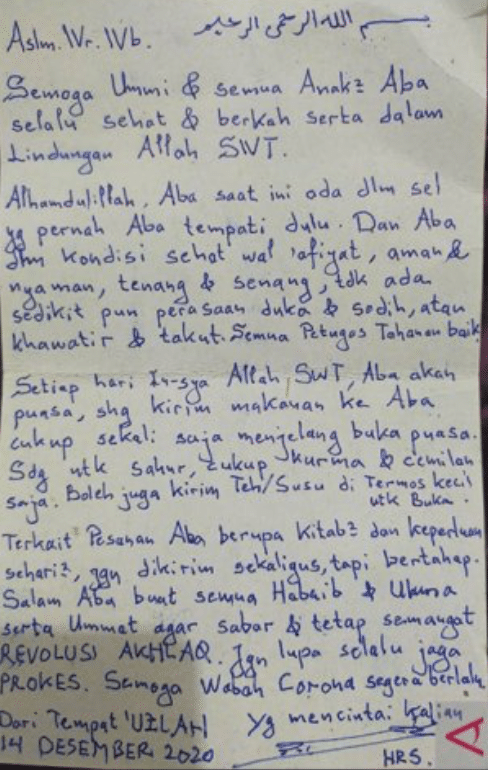 بسم الله الرحمن الرحيم
Aslm. Wr. Wb.
Semoga Ummi & semua Anak² Aba
selalu sehat & berkah serta dalam
Lindungan Allah SWT.
Alhamdulillah, Aba saat ini ada dlm sel
yg pernah Aba tempati dulu. Dan Aba
dlm kondisi sehat wal 'afiyat, aman &
nyaman, tenang & senang, tdk ada
sedikit pun perasaan duka & sedih, atau
khawatir & takut. Semua Petugas Tahanan baik
Setiap hari In-sya Allah SWT, Aba akan
puasa, shg kirim makanan ke Aba
cukup sekali saja menjelang buka puasa.
Sdg utk sahur, cukup kurma & cemilan
saja. Boleh juga kirim Teh/Susu di Termos kecil
utk Buka.
Terkait Pesanan Aba berupa Kitab² dan keperluan
sehari², jgn dikirim sekaligus, tapi bertahap.
Salam Aba buat semua Habaib & Ulama
serta Ummat agar sabar & tetap semangat
REVOLUSI AKHLAQ. Jgn lupa selalu jaga
PROKES. Semoga Wabah Corona segera berlalu
Dari Tempat 'UZLAH
14 DESEMBER 2020
Yg mencintai kalian
HRS.
A